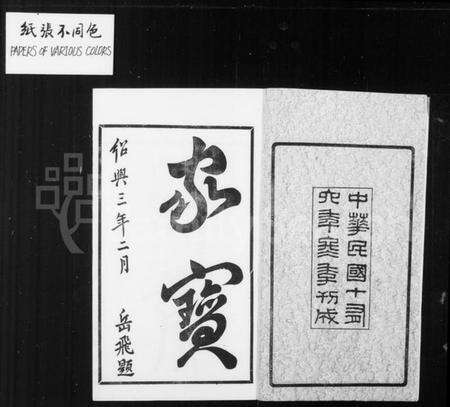 紙張不同色
PAPERS OF VARIOUS COLORS
中華民國十有
六年 成
家寶
紹興三年二月 岳飛題